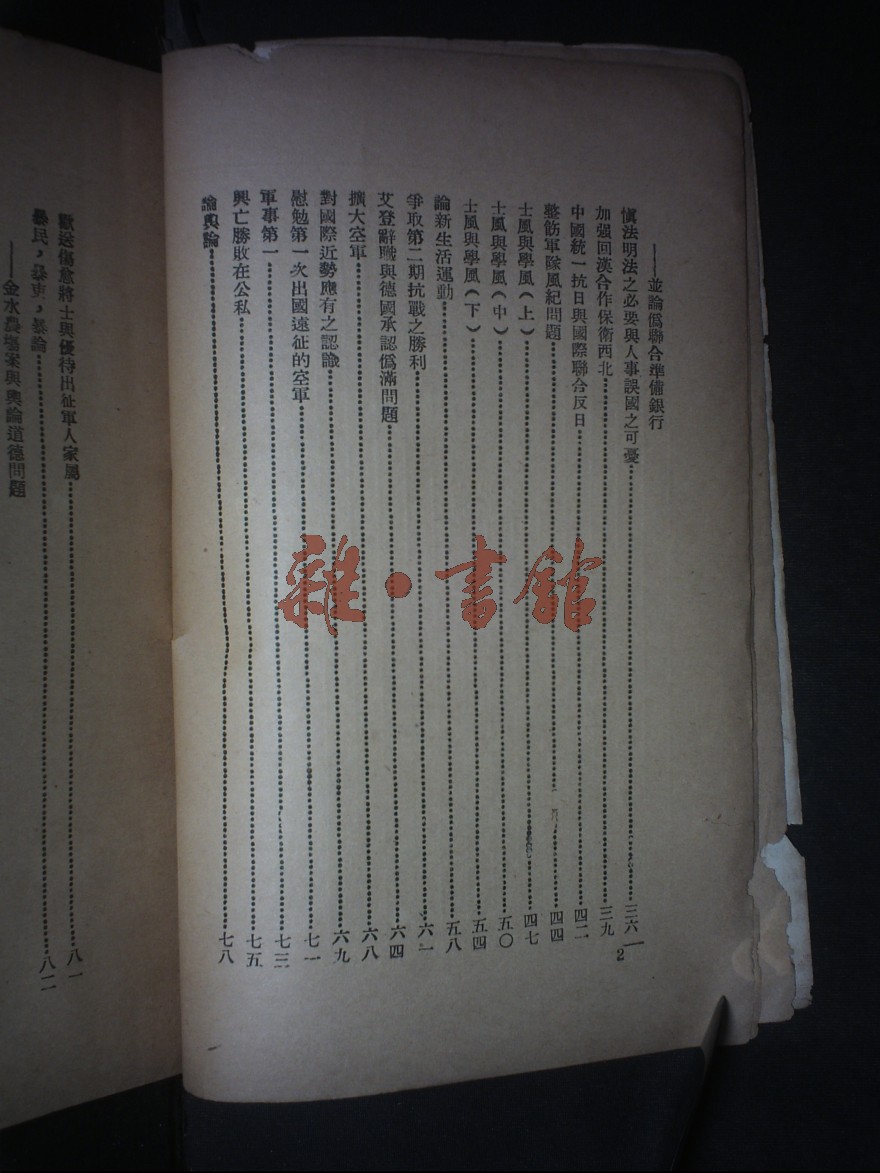 ——並論僞聯合準備銀行
愼法明法之必要與人事誤國之可憂……三六
加强回漢合作保衛西北……三九
中國統一抗日與國際聯合反日……四二
整飭軍隊風紀問題……四四
士風與學風(上)……四七
士風與學風(中)……五〇
士風與學風(下)……五四
論新生活運動……五八
爭取第二期抗戰之勝利……六一
艾登辭職與德國承認僞滿問題……六四
擴大空軍……六八
對國際近勢應有之認識……六九
慰勉第一次出國遠征的空軍……七一
軍事第一……七三
興亡勝敗在公私……七五
論輿論……七八
2
歡送傷愈將士與優待出征軍人家屬……八一
暴民,暴吏,暴論……八二
——金水農場案與輿論道德問題
雜·書館